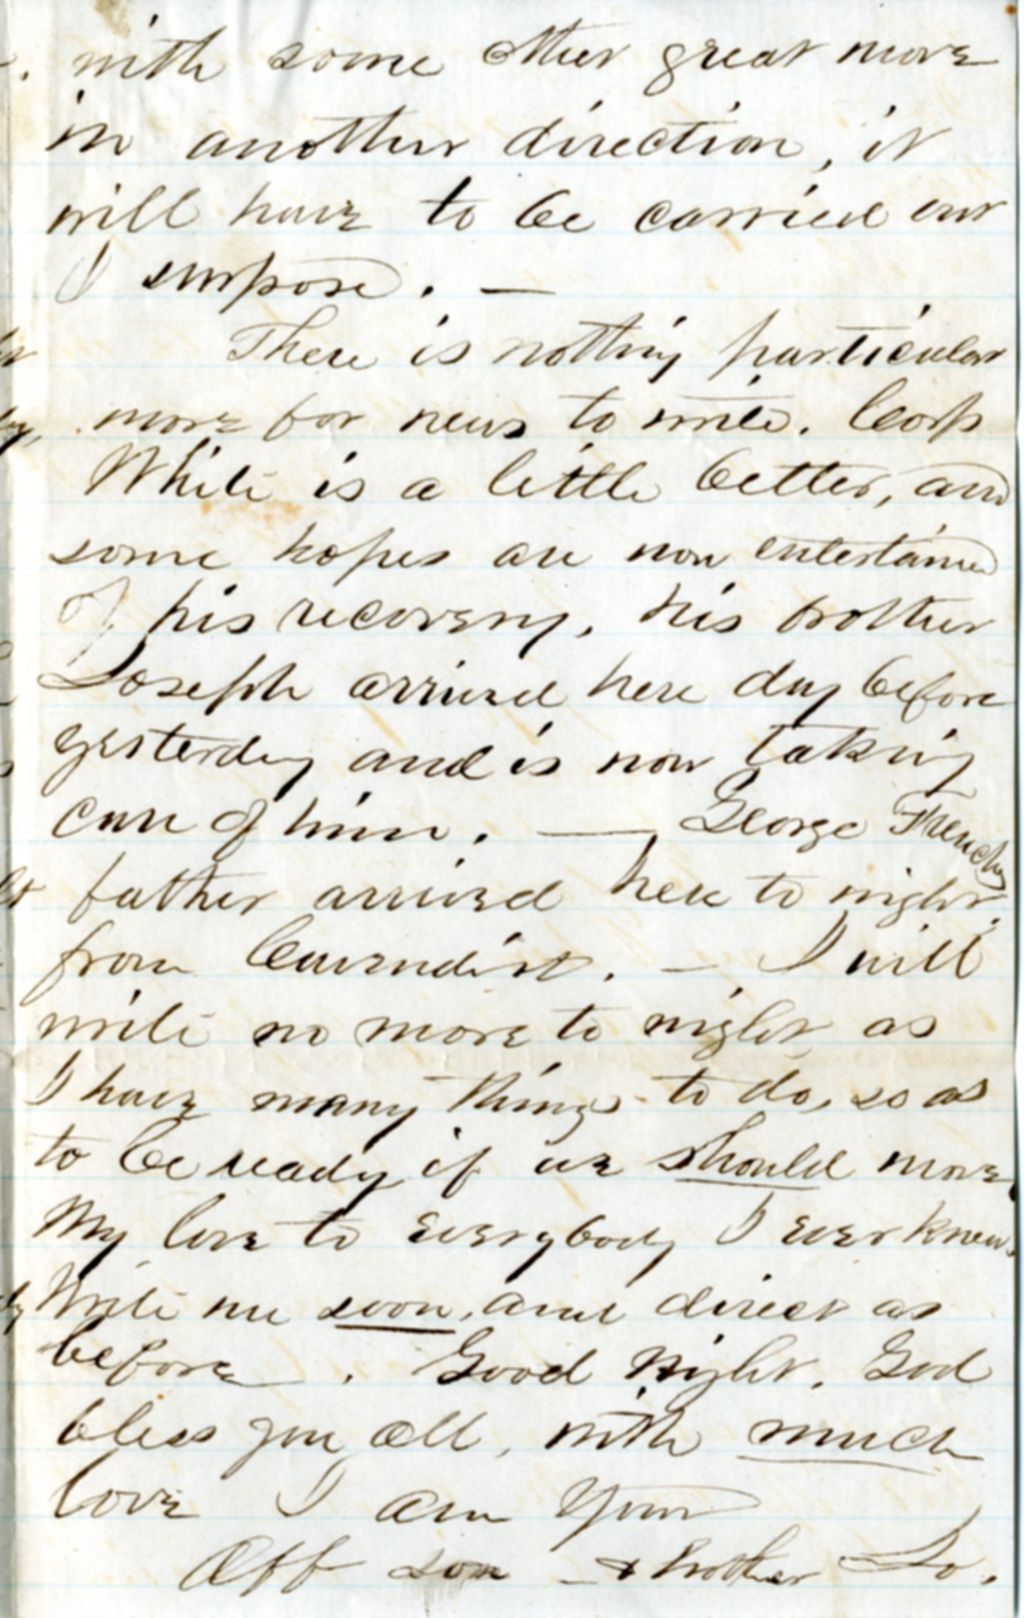 with some other great move
in another direction, it
will have to be carried out
I suppose. —
There is nothing particular
more for news to write. Corp
White is a little better, and
some hopes are now entertained
of his recovery. his brother
Joseph arrived here day before
yesterday and is now taking
care of him. — George French's
father arrived here to night
from Cavendish. — I will
write no more to night as
I have many things to do, so as
to be ready if we should move
My love to everybody I ever knew.
Write me soon, and direct as
before. Good Night. God
bless you all, with much
love I am Your
Aff son & brother